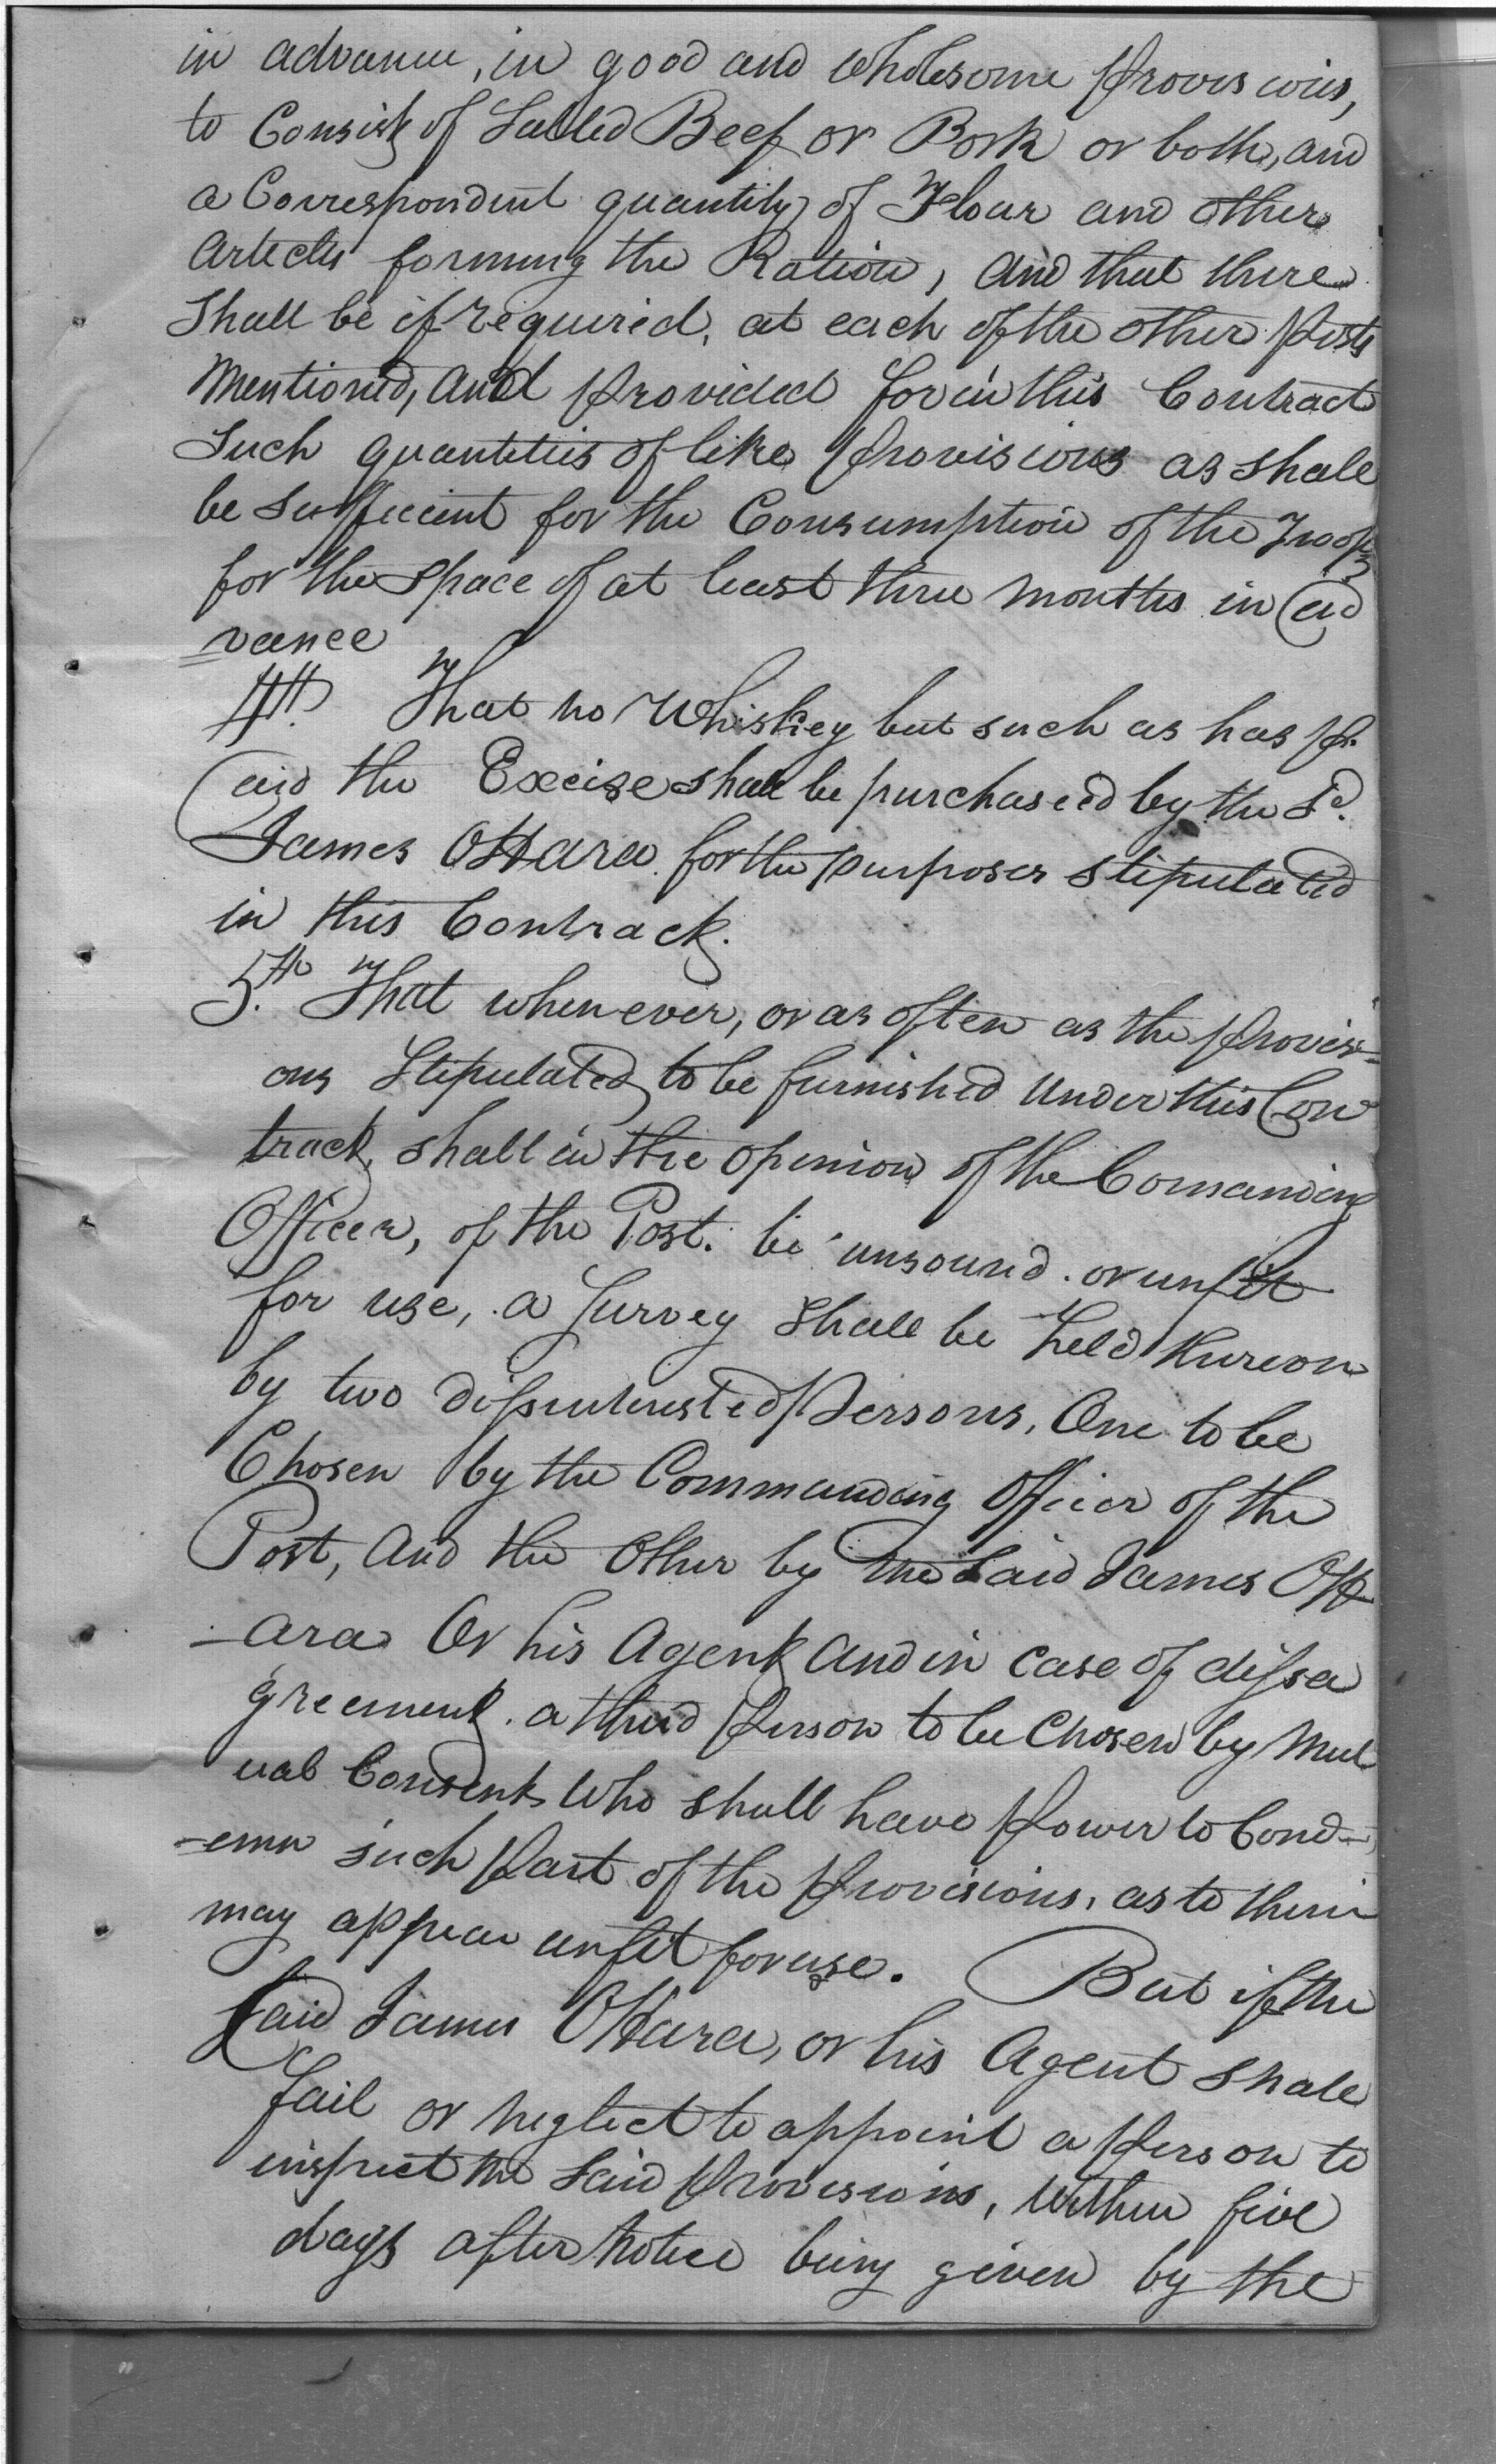 in advance, in good and wholesome provisions,
to Consist of Salted Beef or Pork or both, and
a Correspondent quantity of Flour and other
Artecles forming the Ration, and that there
Shall be if required, at each of the other posts
Mentioned, and provided for in this Contract
Such quantities of like provisions as shall
be sufficient for the Consumption of the Troops
for the space of at least three months in ad
=vance
4th. That no Whiskey but such as has p
aid the Excise shall be purchased by the Sd.
James OHara for the purposes stipulated
in this Contrack.
5.th That whenever, or as often as the provisi=
ons Stipulated to be furnished Under this Con
track, shall in the opinion of the Comanding
Officer, of the Post. be unsound. or unfit
for use, a Survey Shall be held thereon
by two dissinterested Persons, One to be
Chosen by the Commanding Officer of the
Post, And the Other by the Said James OH
-ara Or his Agent and in Case of dissa
greement. a third person to be Chosen by Mut
ual Consent, Who shall have power to Cond-
-emn such part of the provisions, as to them
may appear unfit for use. But if the
Said James OHara, or his Agent shall
fail or neglect to appoint a person to
inspect the Said provisions, Within five
days after Notice being given by the